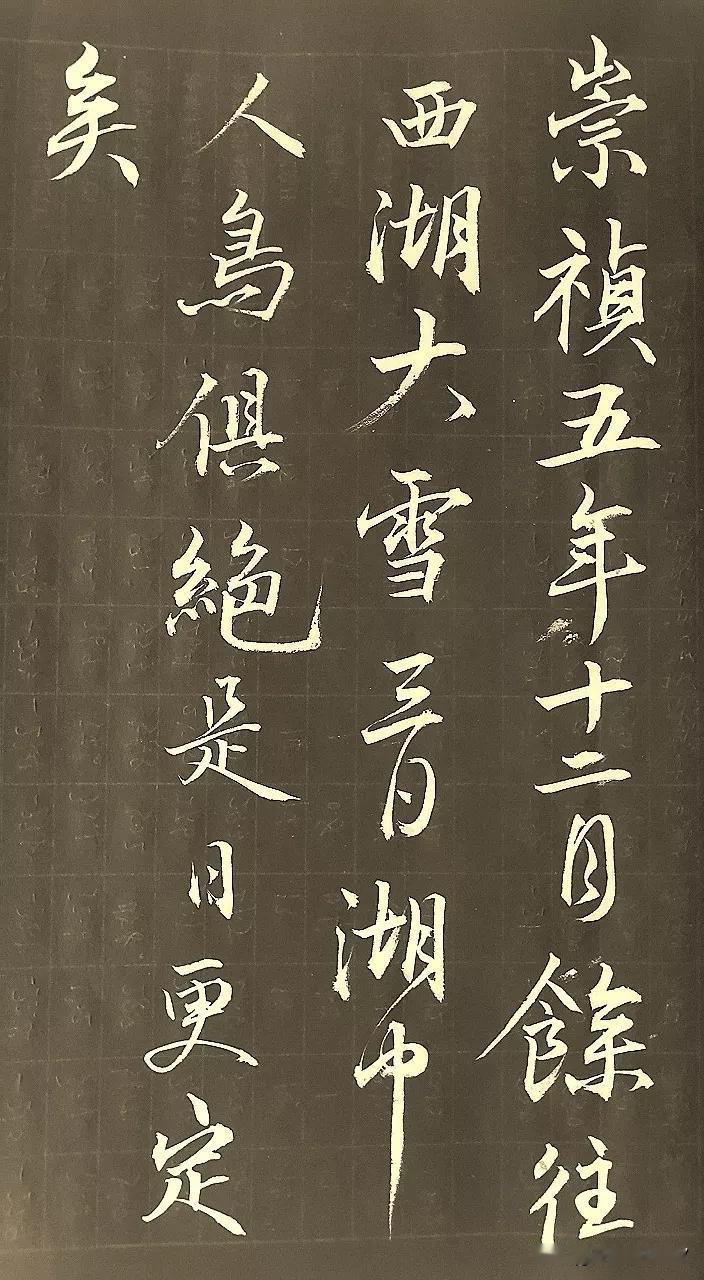 崇禎五年十二月餘往
西湖大雪三日湖中
人鳥俱絕是日更定
矣